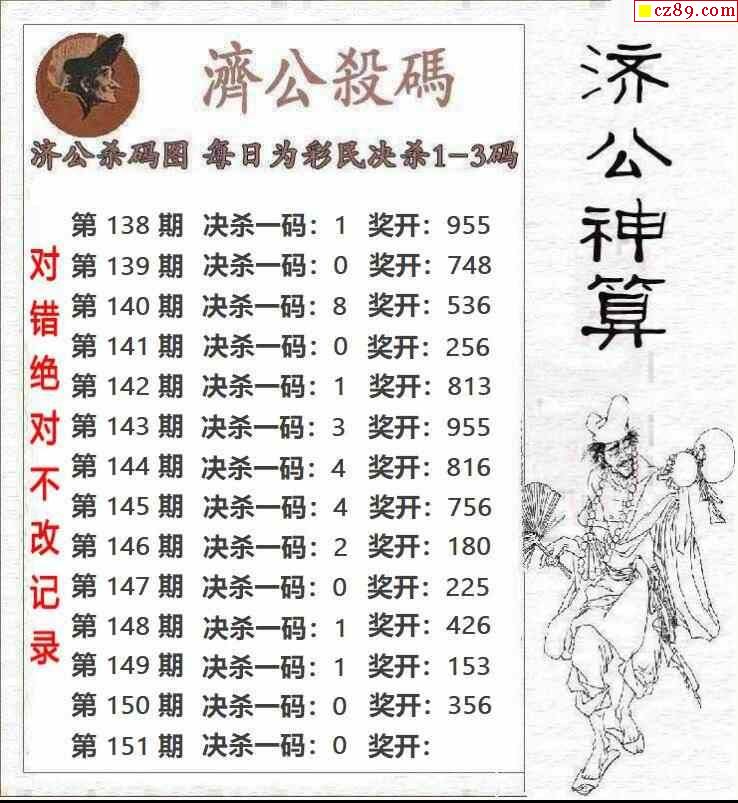 cz89.com
濟公殺碼
济公杀码图 每日为彩民决杀1-3码
第 138 期 决杀一码：1 奖开：955
第 139 期 决杀一码：0 奖开：748
第 140 期 决杀一码：8 奖开：536
第 141 期 决杀一码：0 奖开：256
第 142 期 决杀一码：1 奖开：813
第 143 期 决杀一码：3 奖开：955
第 144 期 决杀一码：4 奖开：816
第 145 期 决杀一码：4 奖开：756
第 146 期 决杀一码：2 奖开：180
第 147 期 决杀一码：0 奖开：225
第 148 期 决杀一码：1 奖开：426
第 149 期 决杀一码：1 奖开：153
第 150 期 决杀一码：0 奖开：356
第 151 期 决杀一码：0 奖开：
对错绝对不改记录
济公神算